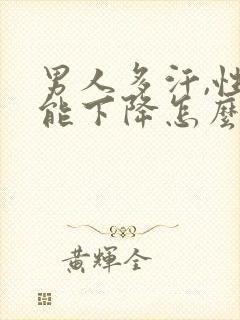 男人多汗,性
能下降怎麼
黃輝全